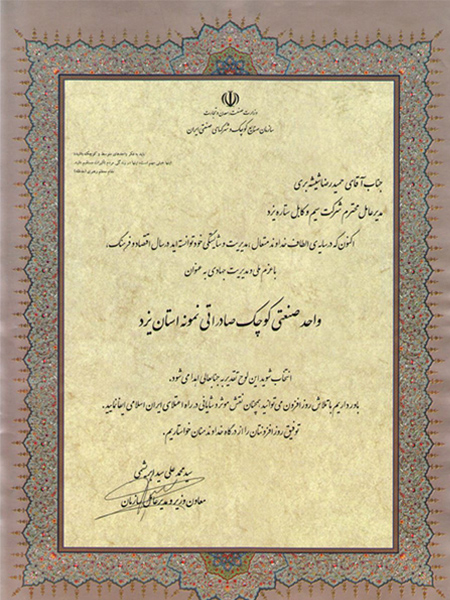 وزارت صنعت، معدن و تجارت
سازمان صنایع کوچک و شهرکهای صنعتی ایران
باید به فکر واحدهای متوسط و کوچک باشید؛
اینها خیلی مهم است؛ اینها در زندگی مردم تأثیرات مستقیم دارد.
مقام معظم رهبری (مدظله)
جناب آقای حمیدرضا شیشه بری
مدیرعامل محترم شرکت سیم و کابل ستاره یزد
اکنون که در سایه ی الطاف خداوند متعال، مدیریت و شایستگی خود توانسته اید در سال اقتصاد و فرهنگ،
با عزم ملی و مدیریت جهادی به عنوان
واحد صنعتی کوچک صادراتی نمونه استان یزد
انتخاب شوید این لوح تقدیر به جنابعالی اهدا می شود.
باور داریم با تلاش روزافزون می توانید همچنان نقش موثر و شایانی در راه اعتلای ایران اسلامی ایفا نمایید.
توفیق روزافزونتان را از درگاه خداوند منان خواستاریم.
سید محمد علی سید ابریشمی
معاون وزیر و مدیرعامل سازمان